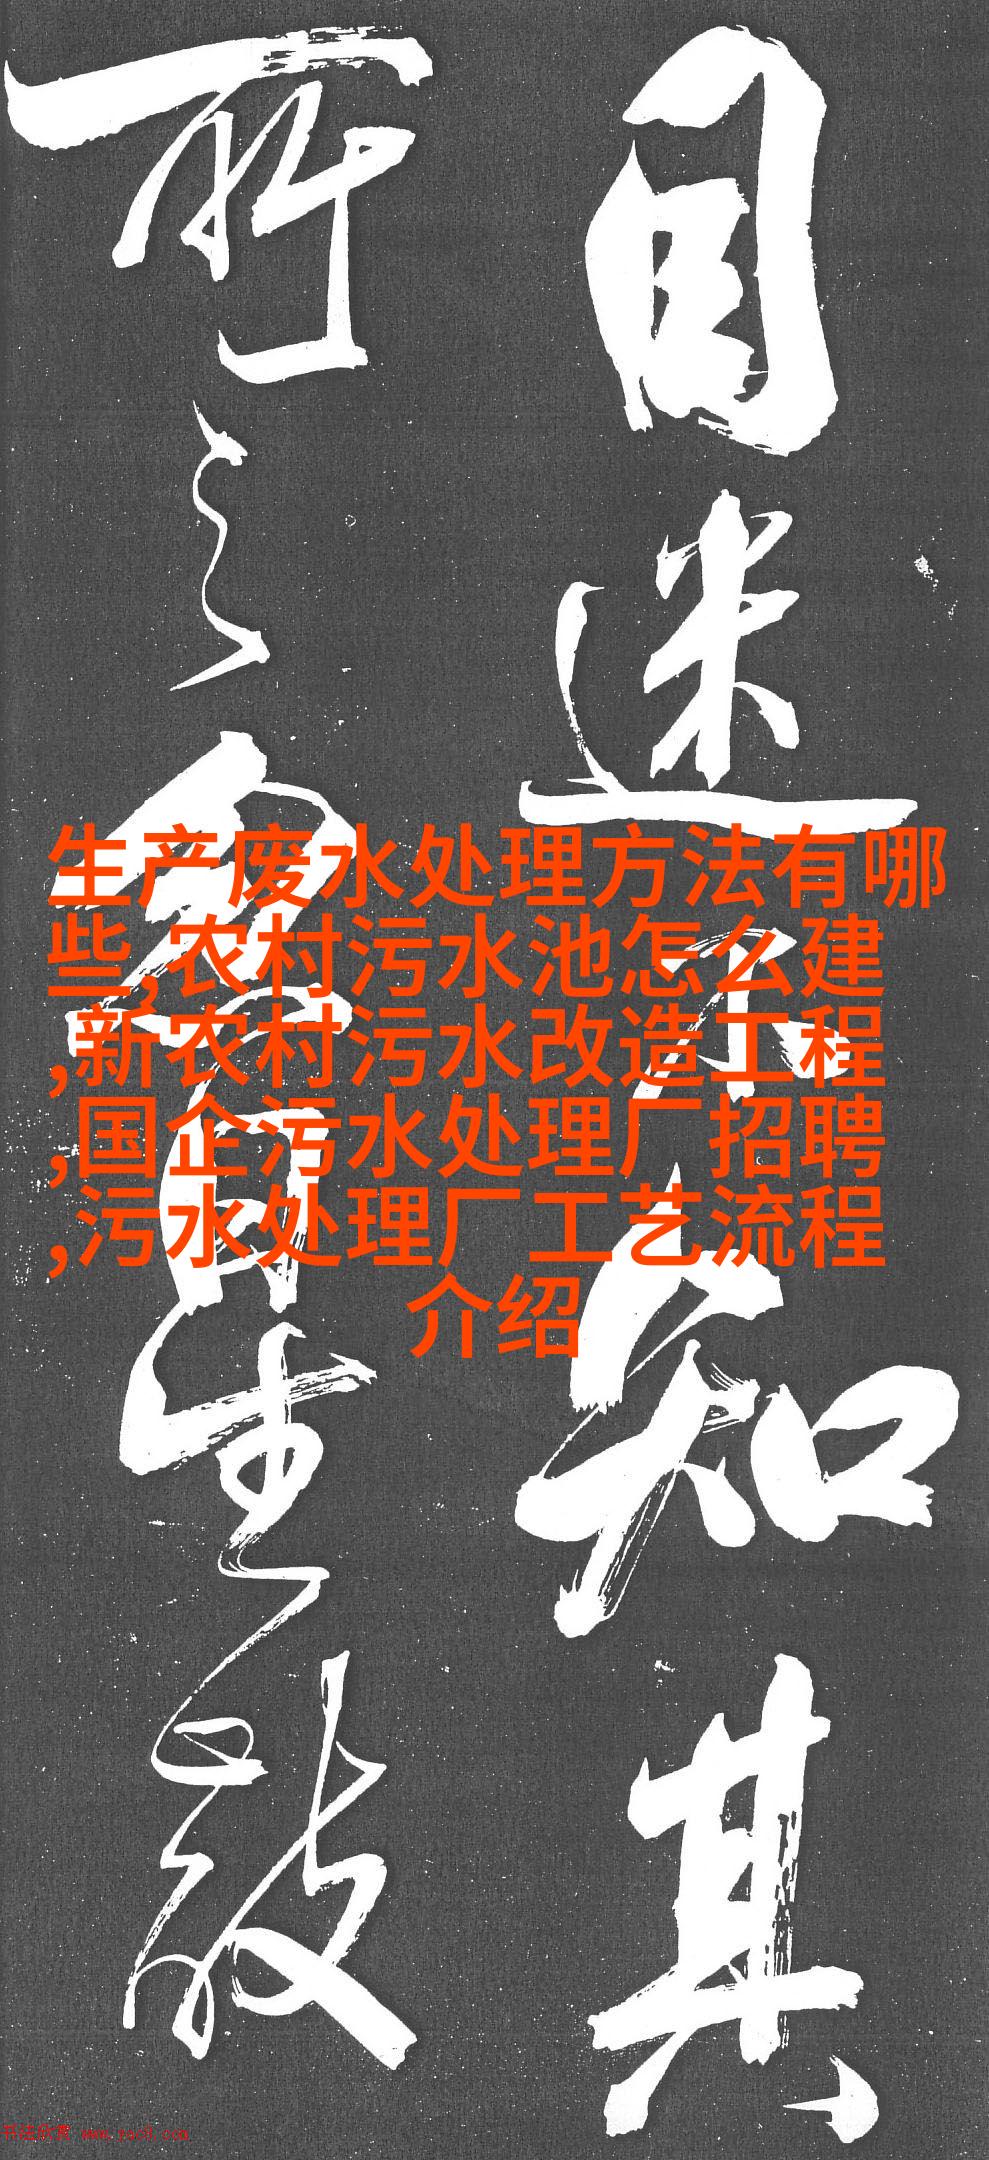 目迷不知其
所之
生产废水处理方法有哪
些,农村污水池怎么建
,新农村污水改造工程
,国企污水处理厂招聘
,污水处理厂工艺流程
介绍